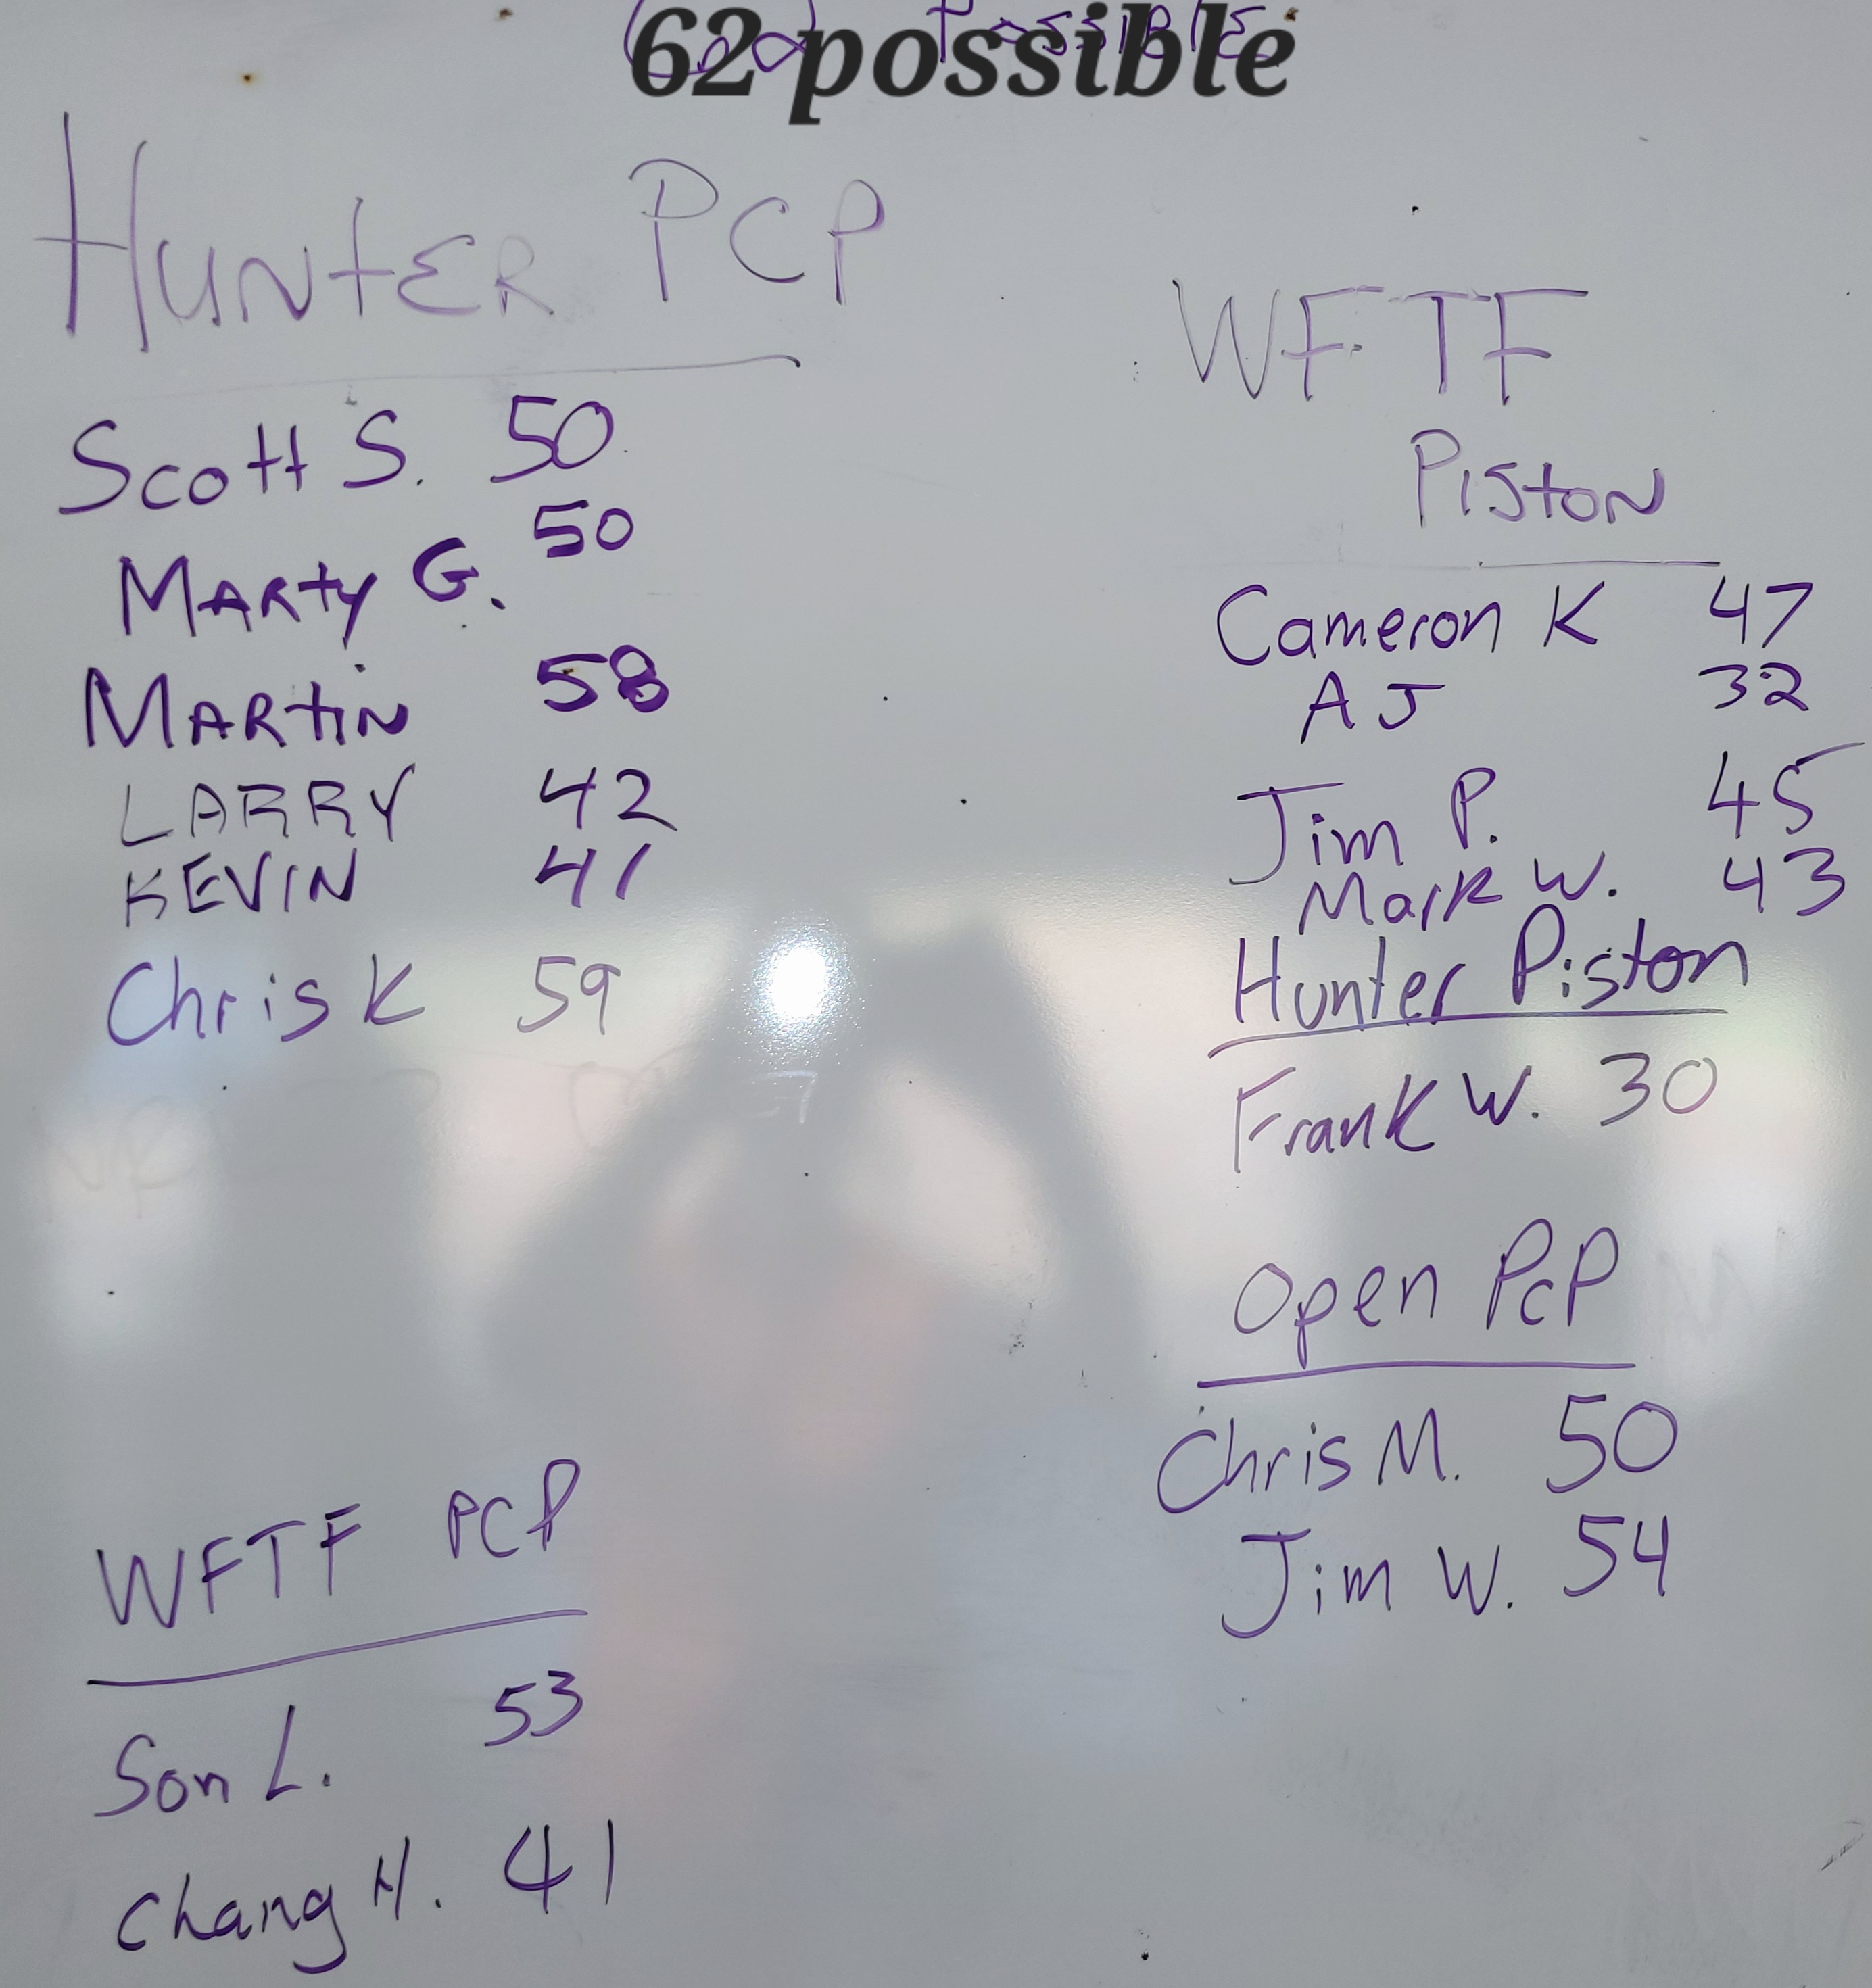 62 possible
HUNTER PCP
Scott S. 50
MARty G. 50
MARtIN 58
LARRY 42
KEVIN 41
Chris K 59
WFTF PCP
Son L. 53
Chang H. 41
WFTF
PIStoN
Cameron K 47
A J 32
Jim P. 45
Mark W. 43
Hunter Piston
Frank W. 30
Open PcP
Chris M. 50
Jim W. 54